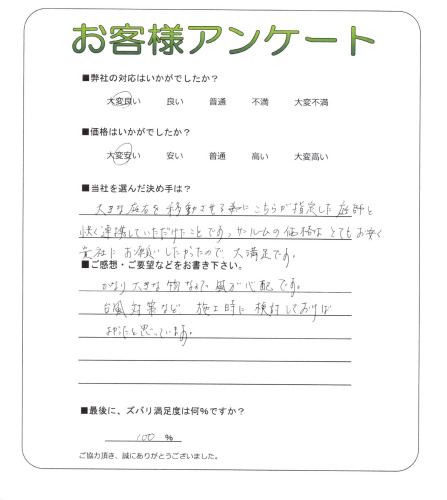 お客様アンケート
■弊社の対応はいかがでしたか？
大変良い 良い 普通 不満 大変不満
■価格はいかがでしたか？
大変安い 安い 普通 高い 大変高い
■当社を選んだ決め手は？
大きな庭石を移動させる為にこちらが指定した庭師と
快く連携していただけたことです。サンルームの価格もとてもお安く
貴社にお願いしたかったので大満足です。
■ご感想・ご要望などをお書き下さい。
かなり大きな物なので風が心配です。
台風対策など 施工時に検討しておけば
よかったと思っています。
■最後に、ズバリ満足度は何％ですか？
100 ％
ご協力頂き、誠にありがとうございました。